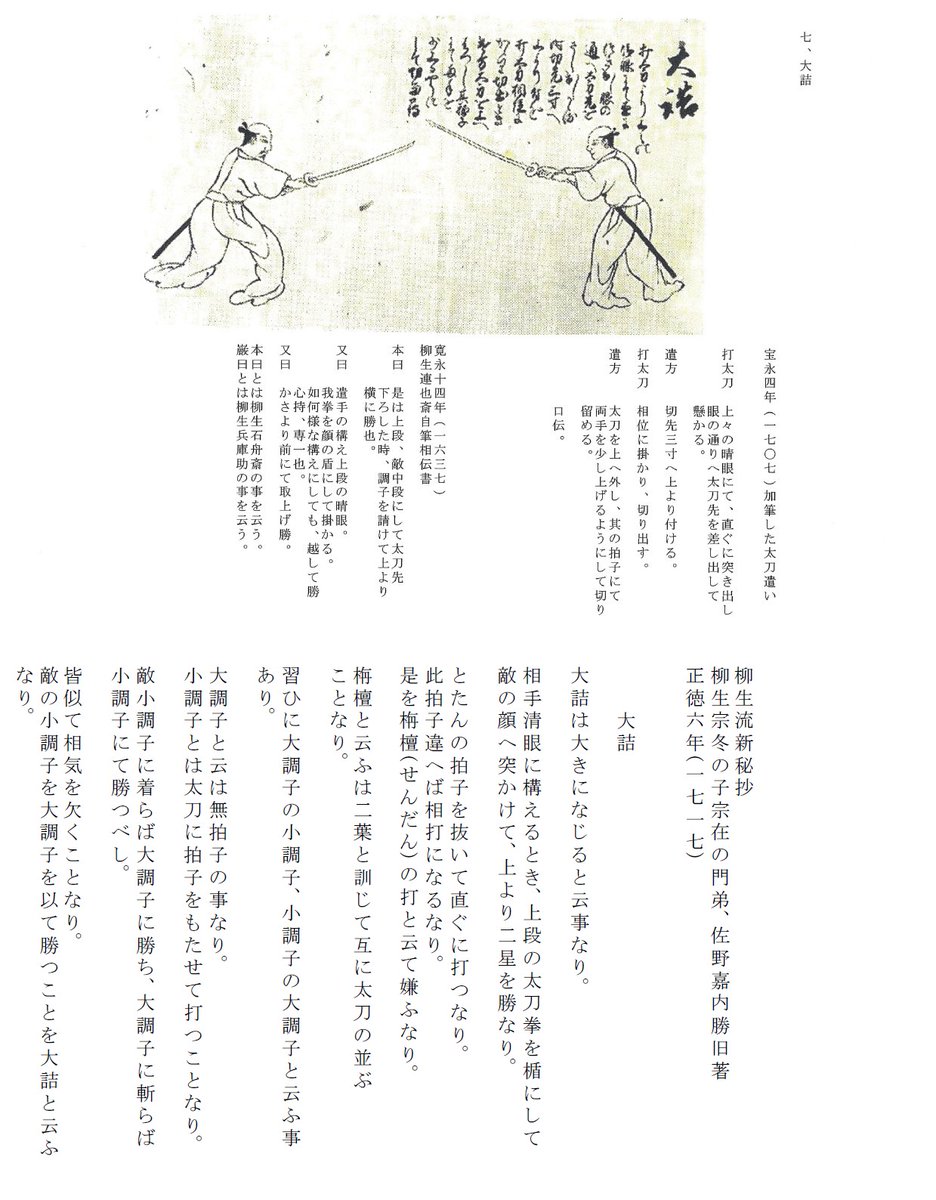 七、大詰
大詰
宝永四年(一七〇七)加筆した太刀遣い
打太刀　上々の晴眼にて、直ぐに突き出し
眼の通りへ太刀先を差し出して
懸かる。
遣方　切先三寸へ上より付ける。
打太刀　相位に掛かり、切り出す。
遣方　太刀を上へ外し、其の拍子にて
両手を少し上げるようにして切り
留める。
口伝。
寛永十四年(一六三七)
柳生連也斎自筆相伝書
本曰　是は上段、敵中段にして太刀先
下ろした時、調子を請けて上より
横に勝也。
又曰　遣手の構え上段の晴眼。
我拳を顔の盾にして掛かる。
如何様な構えにしても、越して勝
心持、専一也。
又曰　かさより前にて取上げ勝。
本曰とは柳生石舟斎の事を云う。
厳曰とは柳生兵庫助の事を云う。
柳生流新秘抄
柳生宗冬の子宗在の門弟、佐野嘉内勝旧著
正徳六年(一七一七)
大詰
大詰は大きになじると云事なり。
相手清眼に構えるとき、上段の太刀拳を楯にして
敵の顔へ突かけて、上より二星を勝なり。
とたんの拍子を抜いて直ぐに打つなり。
此拍子違へば相打になるなり。
是を栴檀(せんだん)の打と云て嫌ふなり。
栴檀と云ふは二葉と訓じて互に太刀の並ぶ
ことなり。
習ひに大調子の小調子、小調子の大調子と云ふ事
あり。
大調子と云は無拍子の事なり。
小調子とは太刀に拍子をもたせて打つことなり。
敵小調子に着らば大調子に勝ち、大調子に斬らば
小調子にて勝つべし。
皆似て相気を欠くことなり。
敵の小調子を大調子を以て勝つことを大詰と云ふ
なり。